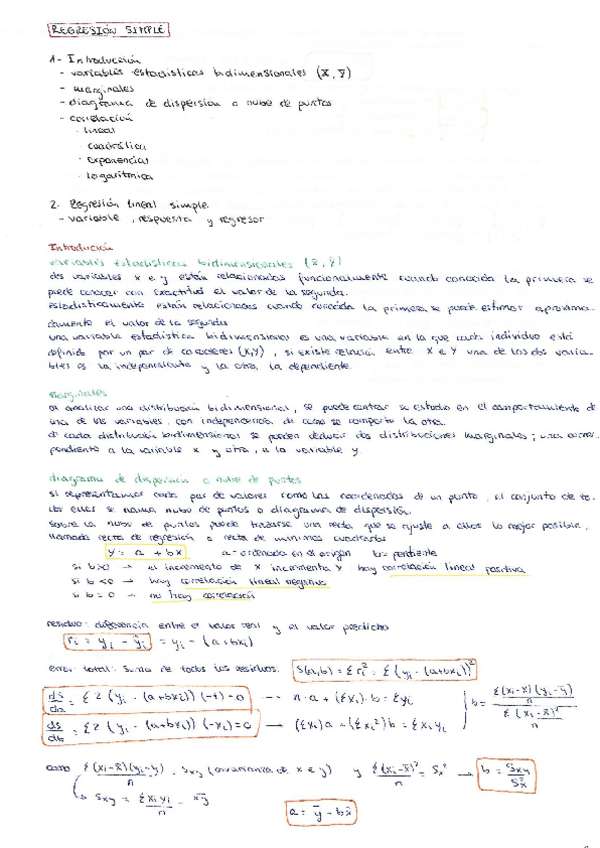 REGRESIÓN SIMPLE
1- Introducción
- variables estadísticas bidimensionales (X, Y)
- marginales
- diagrama de dispersión o nube de puntos
- correlación
· lineal
· cuadrática
· exponencial
· logarítmica
2- Regresión lineal simple
- variable, respuesta y regresor
Introducción
variables estadísticas bidimensionales (X, Y)
dos variables x e y están relacionadas funcionalmente cuando conocida la primera se
puede conocer con exactitud el valor de la segunda.
estadísticamente están relacionadas cuando conocida la primera, se puede estimar aproxima-
damente el valor de la segunda
una variable estadística bidimensional es una variable en la que cada individuo está
definido por un par de caracteres (X,Y), si existe relación entre X e Y una de las dos varia-
bles es la independiente y la otra, la dependiente.
marginales
al analizar una distribución bidimensional, se puede centrar su estudio en el comportamiento de
una de las variables, con independencia de como se comporte la otra.
de cada distribución bidimensional se pueden deducir dos distribuciones marginales; una corres-
pondiente a la variable x y otra, a la variable y.
diagrama de dispersión o nube de puntos
si representamos cada par de valores como las coordenadas de un punto, el conjunto de to-
dos ellos se llama nube de puntos o diagrama de dispersión.
sobre la nube de puntos puede trazarse una recta que se ajuste a ellos lo mejor posible,
llamada recta de regresión o recta de mínimos cuadrados
y = a + bx a - ordenada en el origen b = pendiente
si b>0 → el incremento de x incrementa y · hay correlación lineal positiva
si b<0 → hay correlación lineal negativa
si b = 0 → no hay correlación
residuo: diferencia entre el valor real y el valor predicho
ri = yi - ŷi = yi - (a+bxi)
error total: suma de todos los residuos. S(a,b) = Σ ri² = Σ (yi - (a+bxi))²
ds/da = Σ 2 (yi - (a+bxi)) (-1) = 0 → n·a + (Σxi)·b = Σyi
ds/db = Σ 2 (yi - (a+bxi)) (-xi) = 0 → (Σxi)a + (Σxi²)b = Σxi yi
b = (Σ(xi-x̄)(yi-ȳ)/n) / (Σ(xi-x̄)²/n)
como Σ(xi-x̄)(yi-ȳ)/n = Sxy (covarianza de x e y) y Σ(xi-x̄)²/n = Sx² → b = Sxy/Sx²
Sxy = Σxi yi/n - x̄ȳ
a = ȳ - bx̄